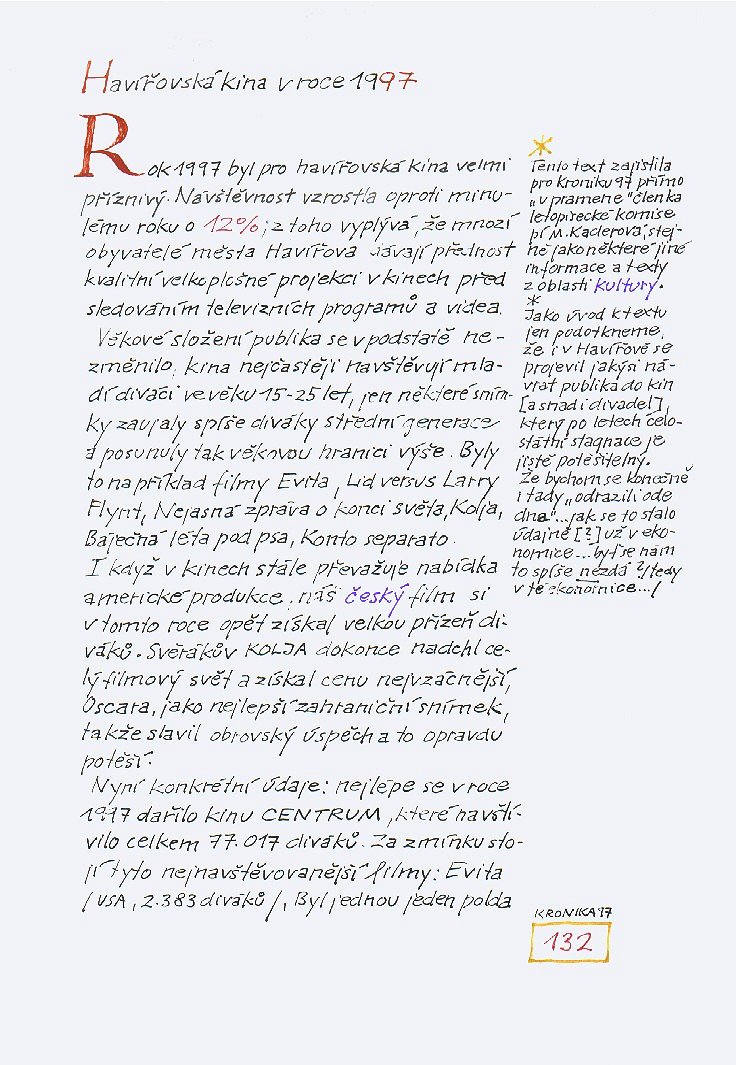 Havířovská kina v roce 1997
Rok 1997 byl pro havířovská kina velmi
příznivý. Návštěvnost vzrostla oproti minu-
lému roku o 12%; z toho vyplývá, že mnozí
obyvatelé města Havířova dávají přednost
kvalitní velkoplošné projekci v kinech před
sledováním televizních programů a videa.
Věkové složení publika se v podstatě ne-
změnilo, kina nejčastěji navštěvují mla-
dí diváci ve věku 15-25 let, jen některé sním-
ky zaujaly spíše diváky střední generace
a posunuly tak věkovou hranici výše. Byly
to například filmy Evita, Lid versus Larry
Flynt, Nejasná zpráva o konci světa, Kolja,
Báječná léta pod psa, Konto separato.
I když v kinech stále převažuje nabídka
americké produkce, náš český film si
v tomto roce opět získal velkou přízeň di-
váků. Svěrákův KOLJA dokonce nadchl ce-
lý filmový svět a získal cenu nejvzácnější,
Oscara, jako nejlepší zahraniční snímek,
takže slavil obrovský úspěch a to opravdu
potěší.
Nyní konkrétní údaje: nejlépe se v roce
1997 dařilo kinu CENTRUM, které navští-
vilo celkem 77.017 diváků. Za zmínku sto-
jí tyto nejnavštěvovanější filmy: Evita
/USA, 2.383 diváků/, Byl jednou jeden polda
*
Tento text zajistila
pro kroniku 97 přímo
„u pramene" členka
letopisecké komise
pí M. Kaderová, stej-
ně jako některé jiné
informace a tedy
z oblasti kultury.
*
Jako úvod k textu
jen podotkneme,
že i v Havířově se
projevil jakýsi ná-
vrat publika do kin
[a snad i divadel],
který po letech celo-
státní stagnace je
jistě potěšitelný.
Že bychom se konečně
i tady „odrazili ode
dna"... jak se to stalo
údajně [?] už v eko-
nomice... byť se nám
to spíše nezdá ?/tedy
v té ekonomice.../
KRONIKA 97
132